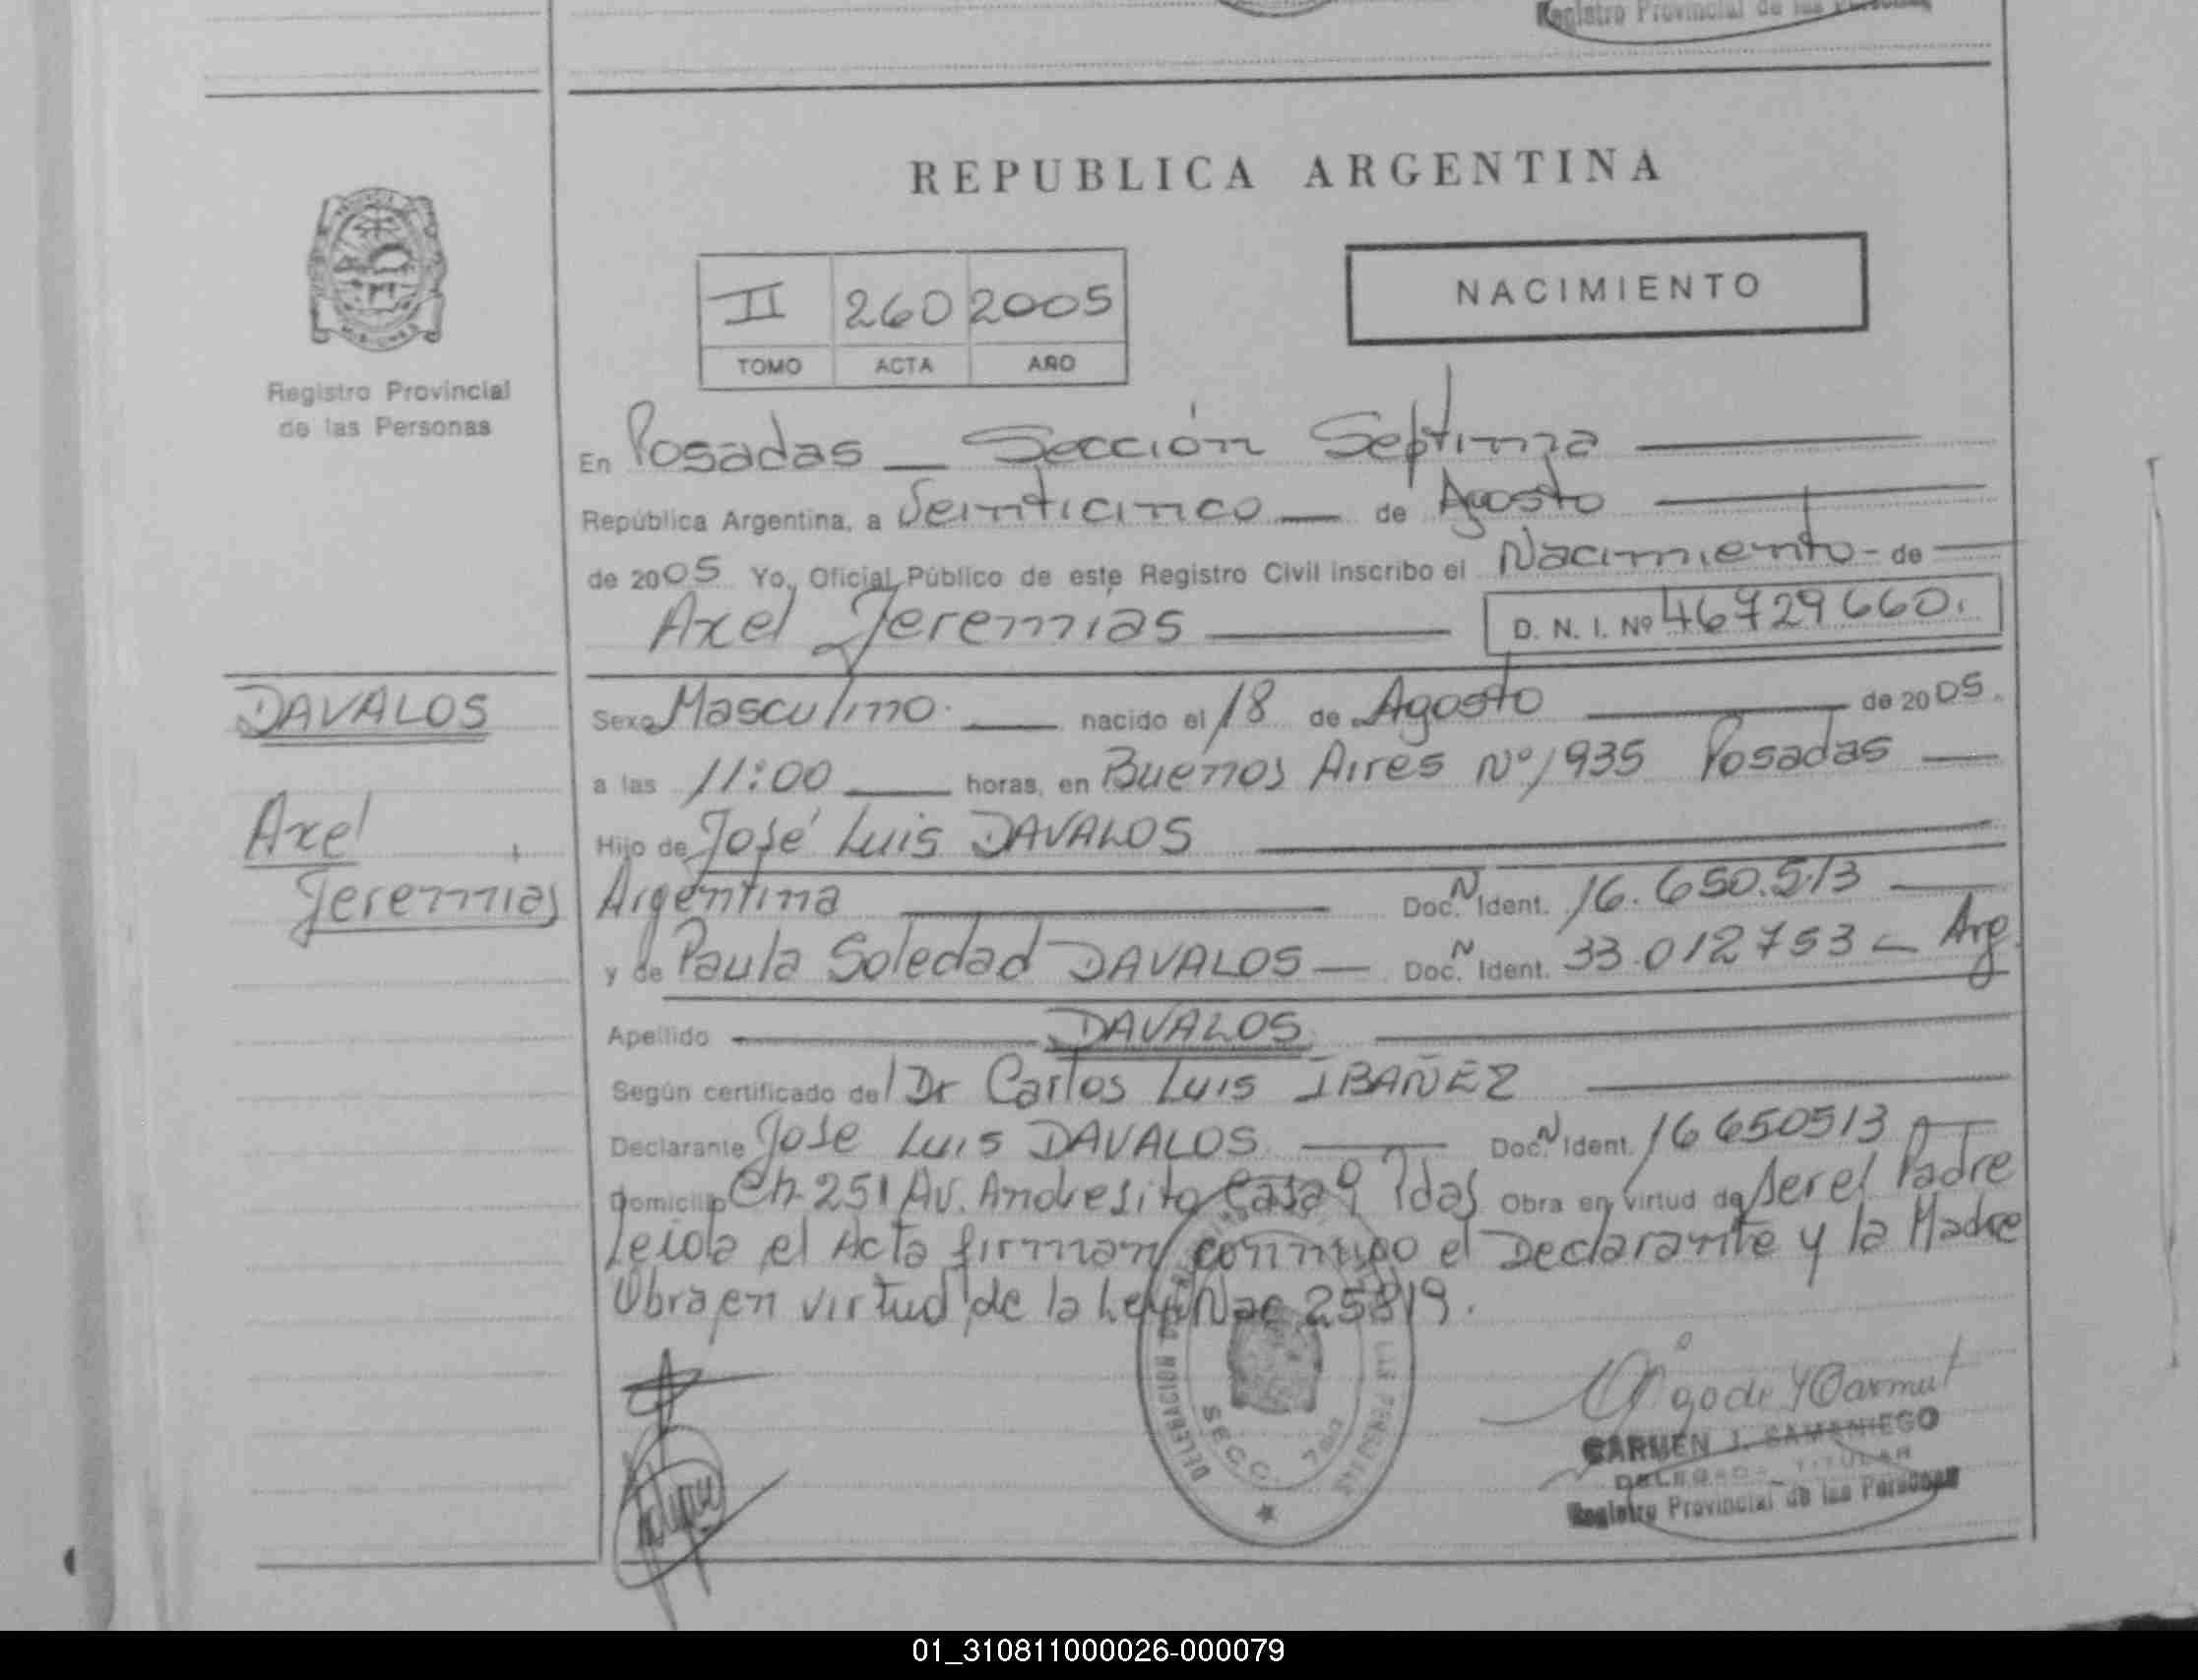 Registro Provincial de las Personas
REPUBLICA ARGENTINA
NACIMIENTO
II 260 2005
TOMO ACTA AÑO
Registro Provincial
de las Personas
En Posadas — Sección Septima
República Argentina, a Veinticinco — de Agosto
de 2005 Yo, Oficial Público de este Registro Civil inscribo el Nacimiento - de
Axel Jeremias D. N. I. Nº 46729660.
DAVALOS
Axel
Jeremias
Sexo Masculino. nacido el 18 de Agosto de 2005.
a las 11:00 horas, en Buenos Aires Nº 1935 Posadas —
Hijo de José Luis DAVALOS
Argentina Doc. N Ident. 16.650.513
y de Paula Soledad DAVALOS — Doc. N Ident. 33.012753 - Arg.
Apellido DAVALOS
Según certificado del Dr Carlos Luis IBAÑEZ
Declarante Jose Luis DAVALOS Doc. N Ident. 16650513
Domicilio Ch 251 Av. Andresito Casa 9 Pdas Obra en virtud de ser el Padre
Leida el Acta firman conmigo el Declarante y la Madre
Obra en virtud de la Ley Nac 25819.
DELEGACION LAS PERSONAS
SECC. 7ma
CARMEN J. SAMANIEGO
DELEGADA TITULAR
Registro Provincial de las Personas
01_310811000026-000079